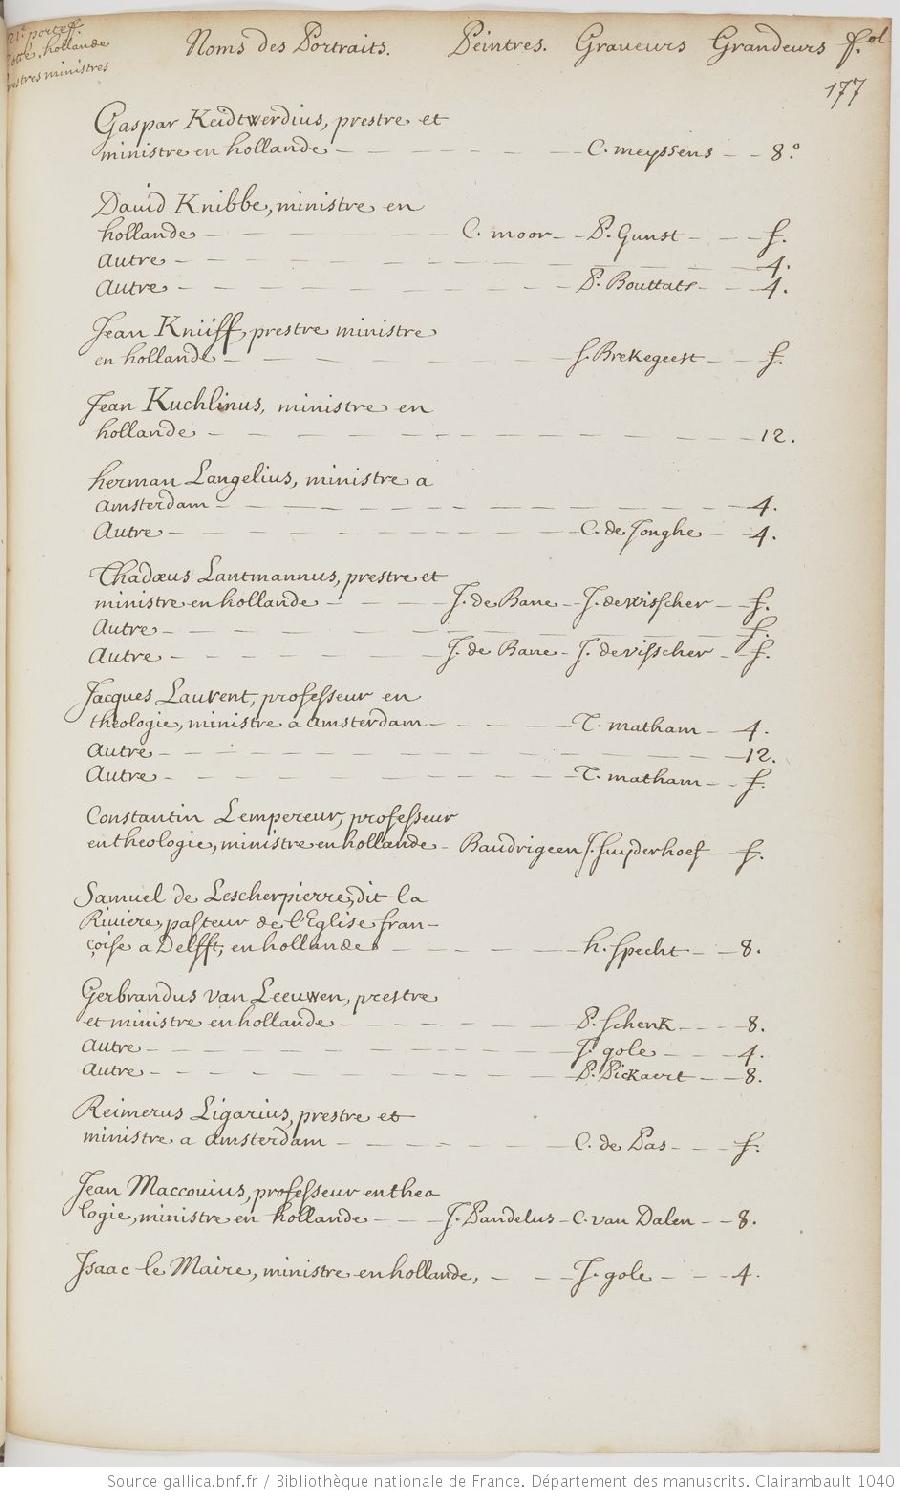 21e portef.
hollande
prestres ministres
Noms des Portraits. Peintres. Graueurs Grandeurs f.ol
177
Gaspar Keidtwerdius, prestre et
ministre en hollande - - - - - C. meyssens - - 8.°
Dauid Knibbe, ministre en
hollande - - - - C. moor - - P. Gunst - - - f.
Autre - - - - - - - - 4.
Autre - - - - - - P. Bouttats - - 4.
Jean Kniiff, prestre ministre
en hollande - - - - - f. Brekegeest - - f.
Jean Kuchlinus, ministre en
hollande - - - - - - - - 12.
herman Langelius, ministre a
amsterdam - - - - - - - - 4.
Autre - - - - - - C. de Jonghe - 4.
Thadæus Lantmannus, prestre et
ministre en hollande - - - J. de Bane - J. de visscher - f.
Autre - - - - - - - - f.
Autre - - - - J. de Bane - J. de visscher - f.
Jacques Laurent, professeur en
theologie, ministre a amsterdam - - - - T. matham - 4.
Autre - - - - - - - - 12.
Autre - - - - - - T. matham - - f.
Constantin Lempereur, professeur
en theologie, ministre en hollande - Baudrigeen J. suyderhoef f.
Samuel de Lescherpierre, dit la
Riuiere, pasteur de l'Eglise fran-
çoise a Delfft, en hollande - - - - h. specht - - 8.
Gerbrandus van Leeuwen, prestre
et ministre en hollande - - - - P. schenk - - - 8.
Autre - - - - - - J. gole - - - 4.
Autre - - - - - - P. Pickaert - - 8.
Reimerus Ligarius, prestre et
ministre a amsterdam - - - - - C. de Pas - - - f.
Jean Maccouius, professeur en theo
logie, ministre en hollande - - - J. Pandelus - C. van Dalen - - 8.
Isaac le Maire, ministre en hollande, - - - J. gole - - - 4.
Source gallica.bnf.fr / Bibliothèque nationale de France. Département des manuscrits. Clairambault 1040